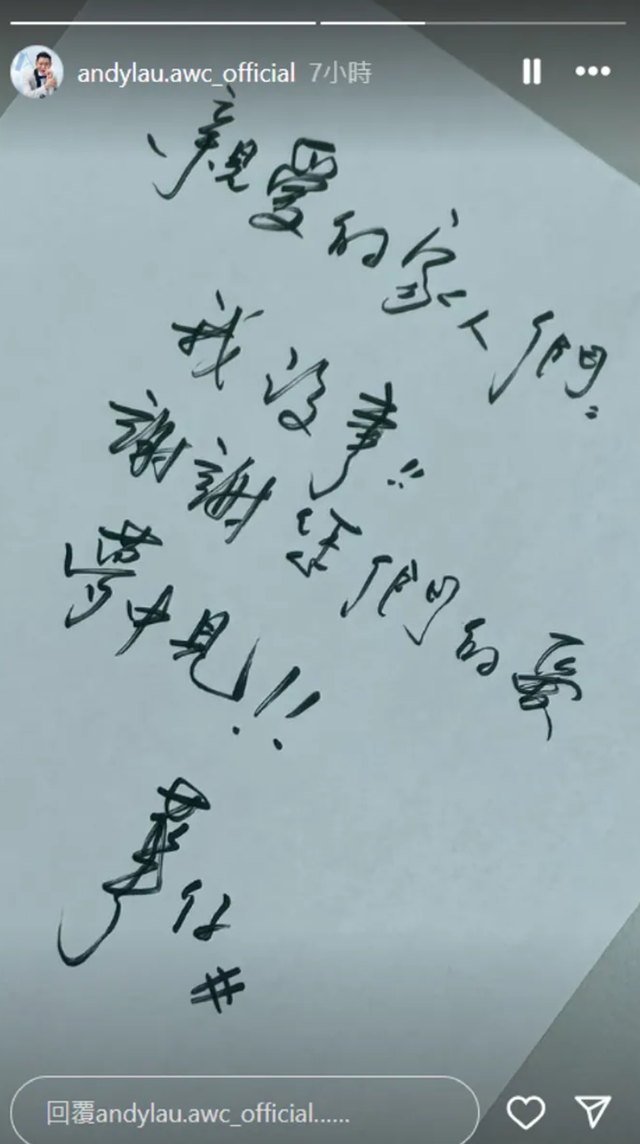 andylau.awc_official 7小時
親愛的家人們:
我沒事!!
謝謝你們的愛
夢中見!!
華仔
#
回覆andylau.awc_official......